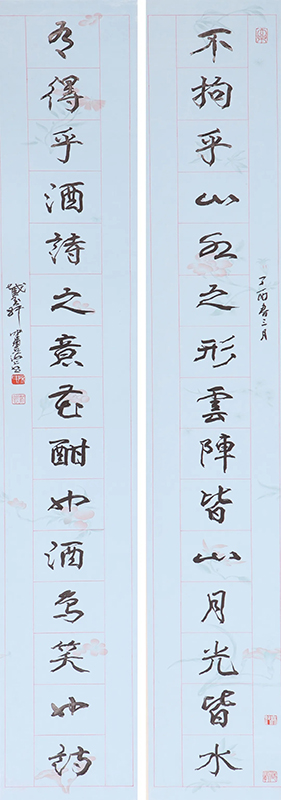 不拘乎山水之形雲陣皆山月光皆水
丁酉春三月
有得乎酒詩之意花酣也酒鳥笑也詩